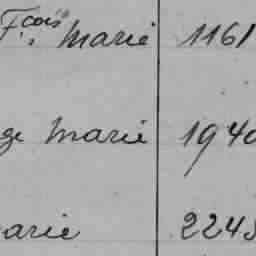 Fçois Marie 1161
ge Marie 1940
arie 2245